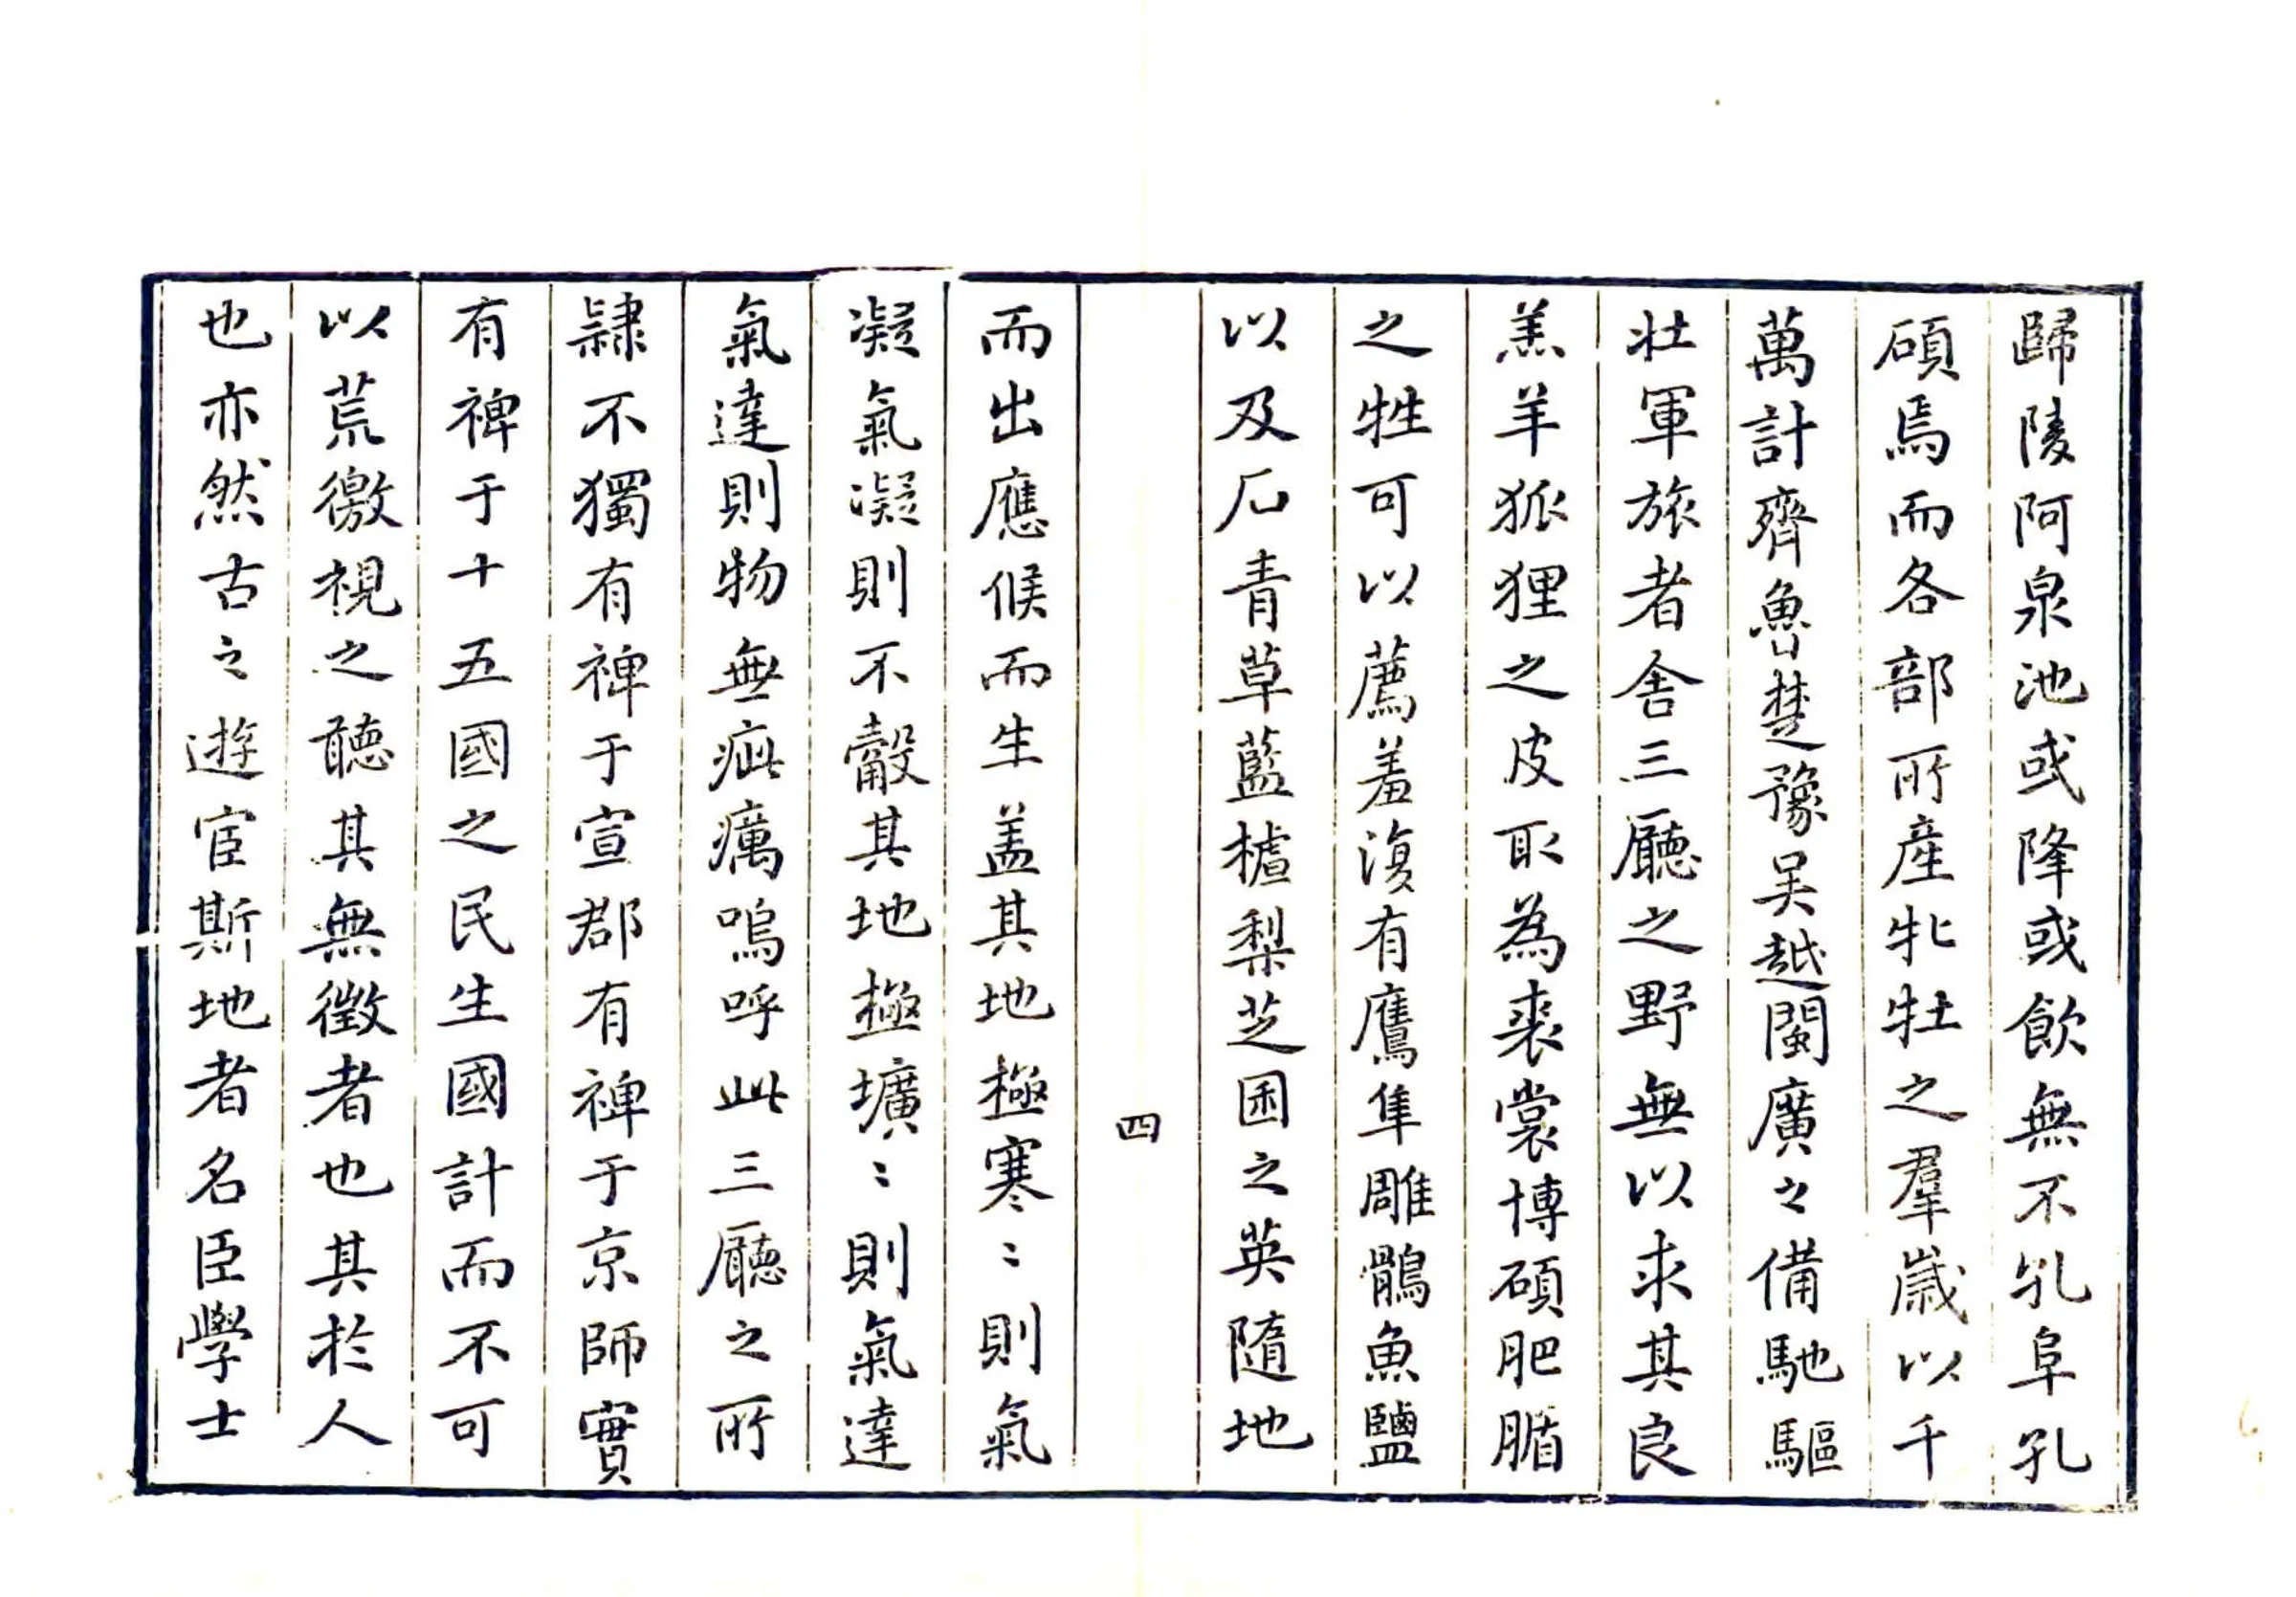 歸陵阿泉池或降或飲無不孔阜孔
碩焉而各部所產牝牡之羣歲以千
萬計齊魯楚豫吳越閩廣之備馳驅
壯軍旅者舍三廳之野無以求其良
羔羊狐狸之皮取為裘裳博碩肥腯
之牲可以薦羞復有鷹隼雕鶻魚鹽
以及石青草藍樝梨芝菌之英隨地
四
而出應候而生盖其地極寒〻則氣
凝氣凝則不㲉其地極壙〻則氣達
氣達則物無疵癘嗚呼此三廳之所
隷不獨有裨于宣郡有裨于京師實
有裨于十五國之民生國計而不可
以荒徼視之聽其無徵者也其於人
也亦然古之遊宦斯地者名臣學士